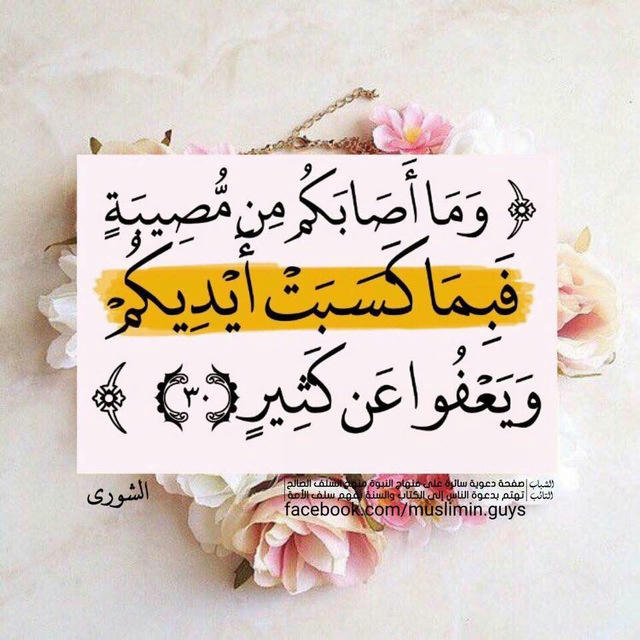 ﴿ وَمَا أَصَابَكُم مِن مُّصِيبَةٍ
فَبِمَا كَسَبَتْ أَيْدِيكُمْ
وَيَعْفُوا عَن كَثِيرٍ (٣٠) ﴾
الشورى
الشباب | صفحة دعوية سائرة على منهاج النبوة منهج السلف الصالح
التائب | تهتم بدعوة الناس إلى الكتاب والسنة بفهم سلف الأمة
facebook.com/muslimin.guys